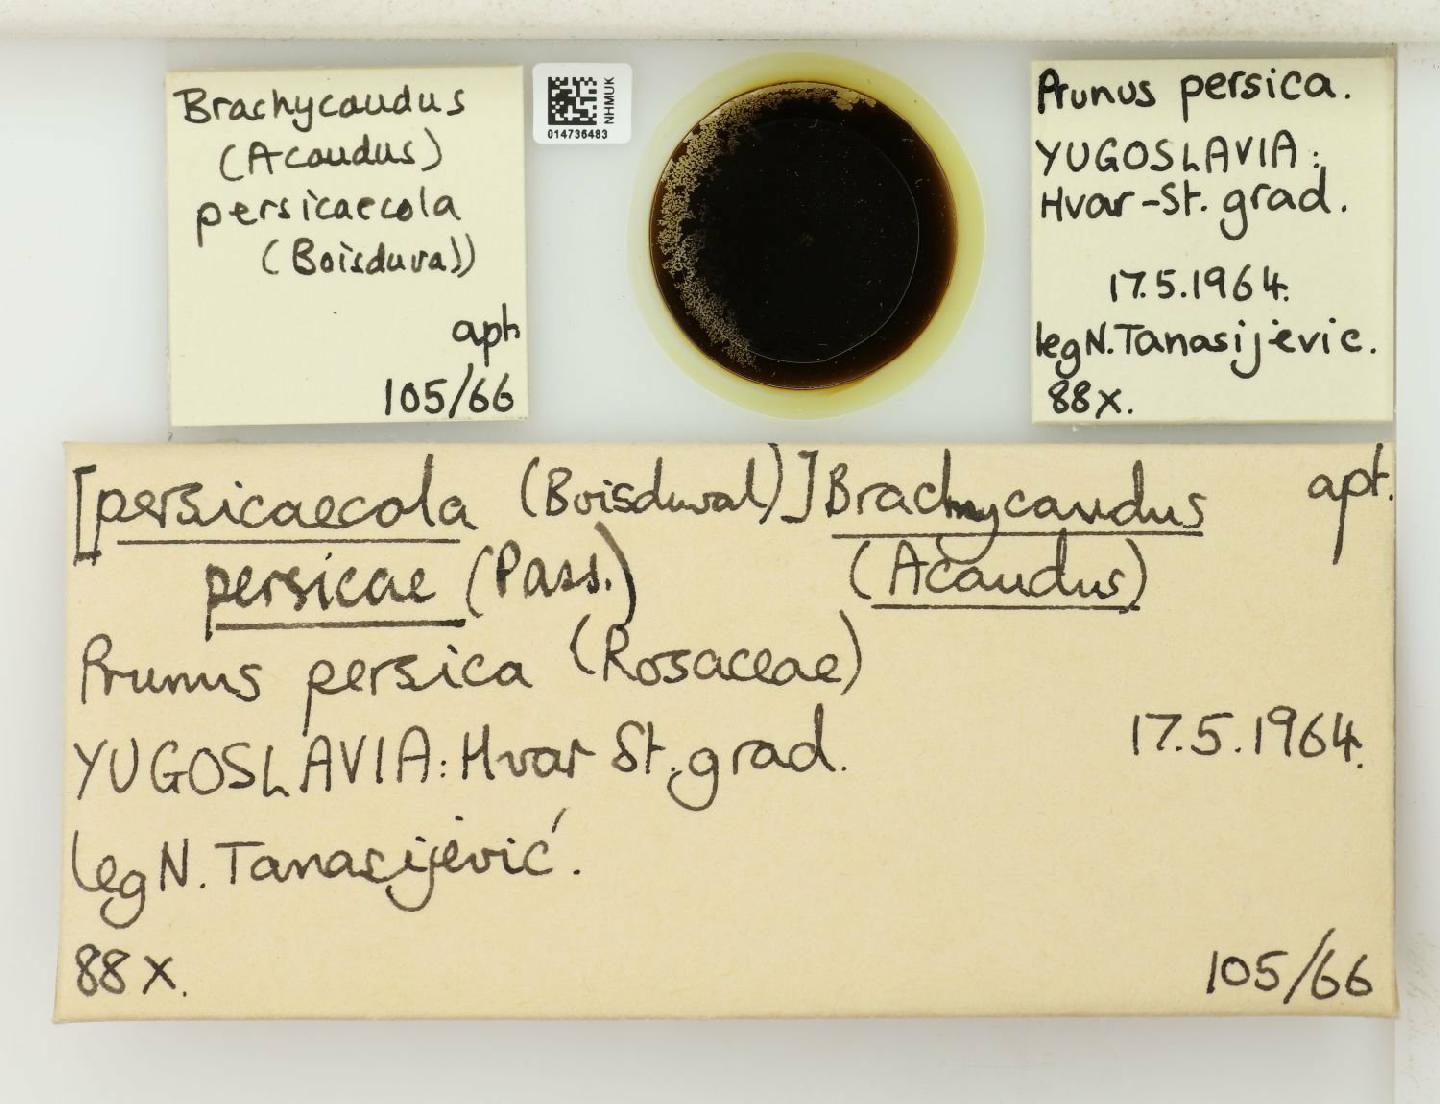 Brachycaudus
(Acaudus)
persicaecola
(Boisduval)
apt.
105/66
NHMUK
014736483
Prunus persica.
YUGOSLAVIA:
Hvar-St. grad.
17.5.1964.
leg N. Tanasijevic.
88x.
[persicaecola (Boisduval)] Brachycaudus apt.
persicae (Pass.) (Acaudus)
Prunus persica (Rosaceae)
YUGOSLAVIA: Hvar St. grad. 17.5.1964.
leg N. Tanasijević.
88x. 105/66